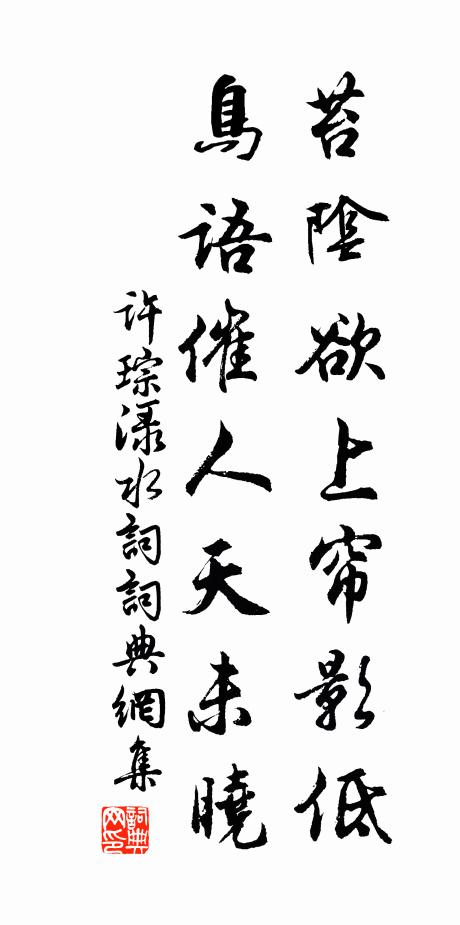 苔陰欲上帘影低
鳥語催人天未曉
許琮淥水詞詞典網集
詞典网印